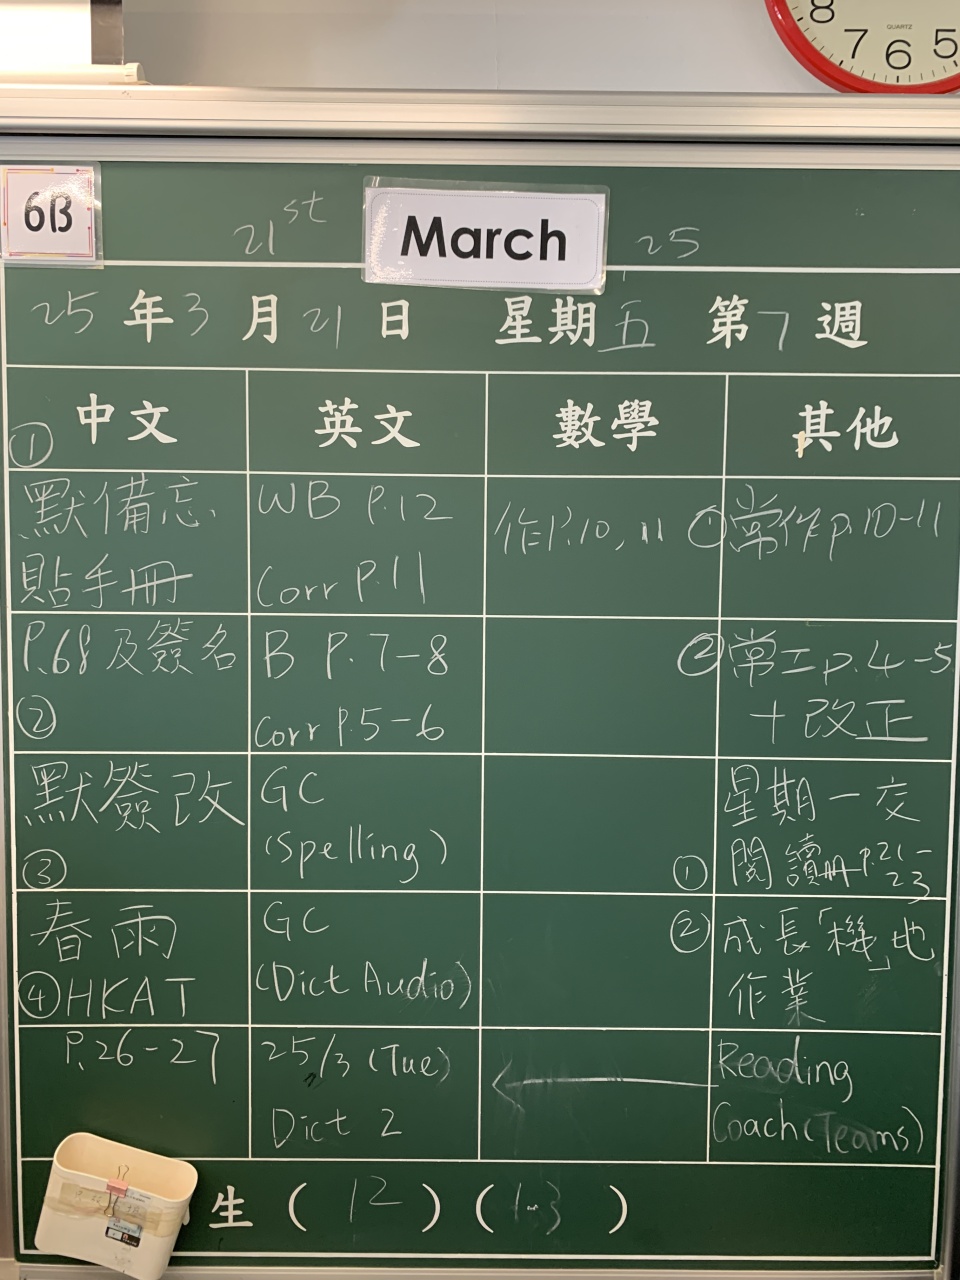 8 7 6 5
QUARTZ
6B
21st March 25
25年3月21日 星期五 第7週
中文 英文 數學 其他
①
默備忘
貼手冊
P.68及簽名
②
默簽改
③
春雨
④HKAT
P.26-27
WB P.12
Corr P.11
B P.7-8
Corr P.5-6
GC
(Spelling)
GC
(Dict Audio)
25/3 (Tue)
Dict 2
作P.10, 11
①常作p.10-11
②常工p.4-5
+改正
星期一交
①閱讀冊P.21-
23
②成長「機」地
作業
Reading
Coach(Teams)
生(12)(1-3)